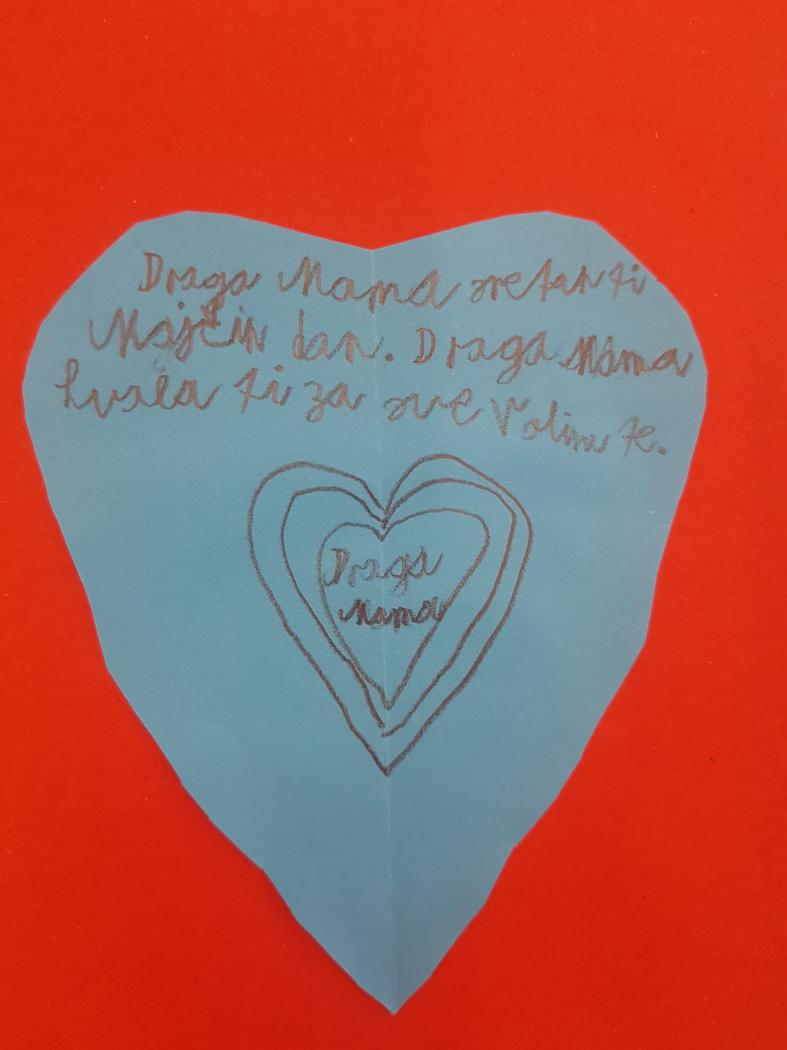 Draga Mama sretan ti
Majčin dan. Draga Mama
hvala ti za sve Volim te.
Draga
Mama